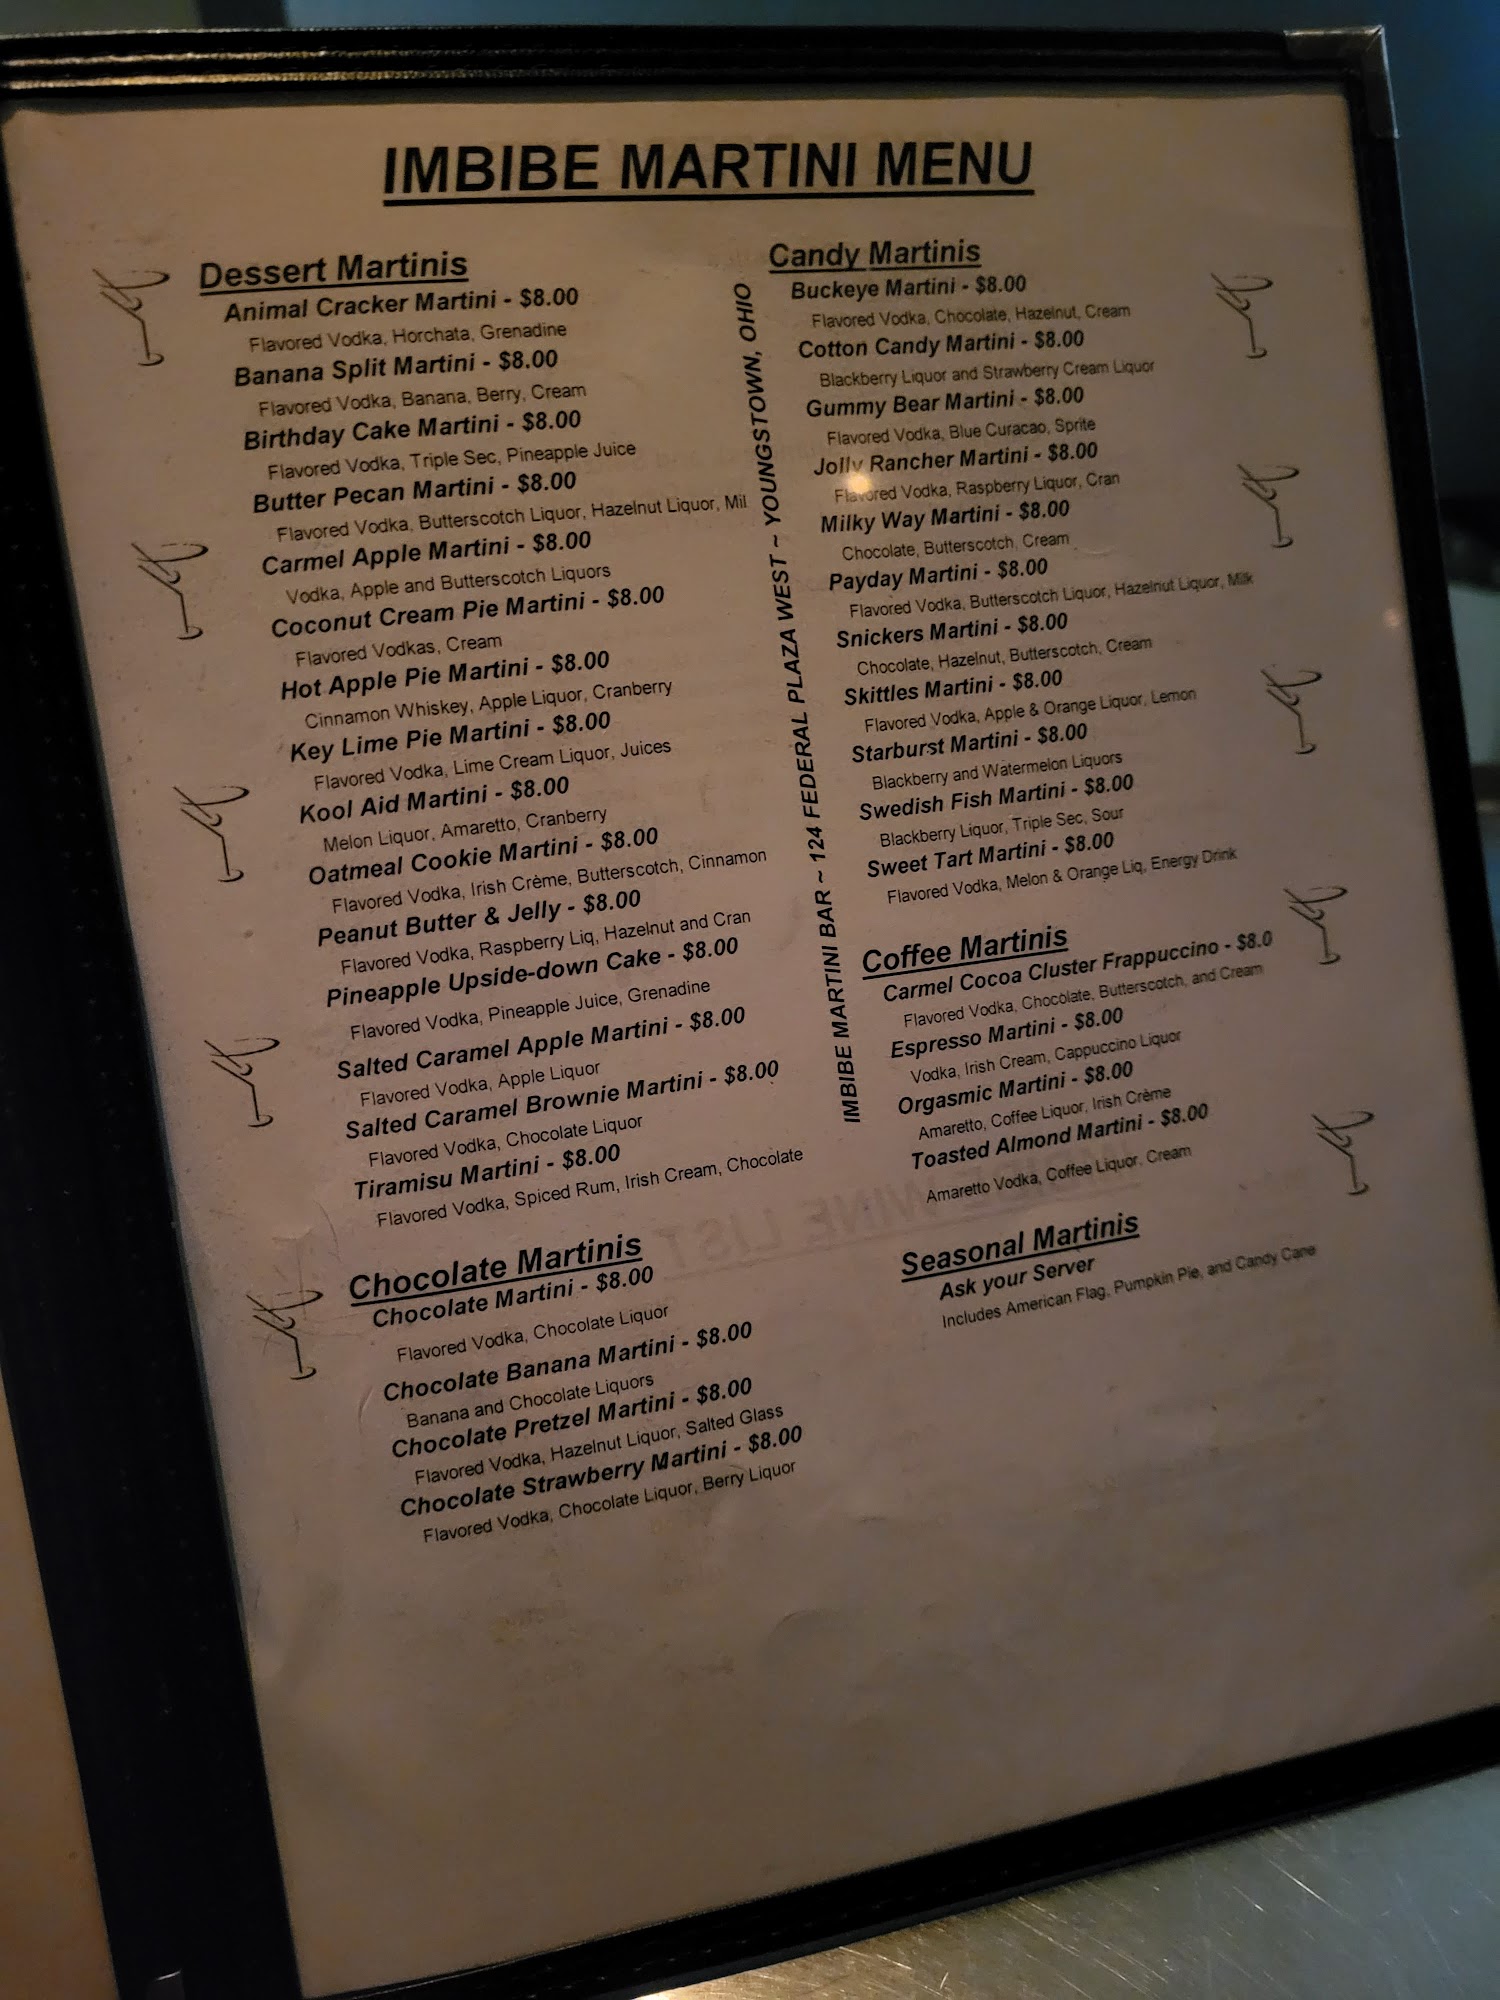 IMBIBE MARTINI MENU
Dessert Martinis
Animal Cracker Martini - $8.00
Flavored Vodka, Horchata, Grenadine
Banana Split Martini - $8.00
Flavored Vodka, Banana, Berry, Cream
Birthday Cake Martini - $8.00
Flavored Vodka, Triple Sec, Pineapple Juice
Butter Pecan Martini - $8.00
Flavored Vodka, Butterscotch Liquor, Hazelnut Liquor, Mil
Carmel Apple Martini - $8.00
Vodka, Apple and Butterscotch Liquors
Coconut Cream Pie Martini - $8.00
Flavored Vodkas, Cream
Hot Apple Pie Martini - $8.00
Cinnamon Whiskey, Apple Liquor, Cranberry
Key Lime Pie Martini - $8.00
Flavored Vodka, Lime Cream Liquor, Juices
Kool Aid Martini - $8.00
Melon Liquor, Amaretto, Cranberry
Oatmeal Cookie Martini - $8.00
Flavored Vodka, Irish Crème, Butterscotch, Cinnamon
Peanut Butter & Jelly - $8.00
Flavored Vodka, Raspberry Liq, Hazelnut and Cran
Pineapple Upside-down Cake - $8.00
Flavored Vodka, Pineapple Juice, Grenadine
Salted Caramel Apple Martini - $8.00
Flavored Vodka, Apple Liquor
Salted Caramel Brownie Martini - $8.00
Flavored Vodka, Chocolate Liquor
Tiramisu Martini - $8.00
Flavored Vodka, Spiced Rum, Irish Cream, Chocolate
Chocolate Martinis
Chocolate Martini - $8.00
Flavored Vodka, Chocolate Liquor
Chocolate Banana Martini - $8.00
Banana and Chocolate Liquors
Chocolate Pretzel Martini - $8.00
Flavored Vodka, Hazelnut Liquor, Salted Glass
Chocolate Strawberry Martini - $8.00
Flavored Vodka, Chocolate Liquor, Berry Liquor
IMBIBE MARTINI BAR ~ 124 FEDERAL PLAZA WEST ~ YOUNGSTOWN, OHIO
Candy Martinis
Buckeye Martini - $8.00
Flavored Vodka, Chocolate, Hazelnut, Cream
Cotton Candy Martini - $8.00
Blackberry Liquor and Strawberry Cream Liquor
Gummy Bear Martini - $8.00
Flavored Vodka, Blue Curacao, Sprite
Jolly Rancher Martini - $8.00
Flavored Vodka, Raspberry Liquor, Cran
Milky Way Martini - $8.00
Chocolate, Butterscotch, Cream
Payday Martini - $8.00
Flavored Vodka, Butterscotch Liquor, Hazelnut Liquor, Milk
Snickers Martini - $8.00
Chocolate, Hazelnut, Butterscotch, Cream
Skittles Martini - $8.00
Flavored Vodka, Apple & Orange Liquor, Lemon
Starburst Martini - $8.00
Blackberry and Watermelon Liquors
Swedish Fish Martini - $8.00
Blackberry Liquor, Triple Sec, Sour
Sweet Tart Martini - $8.00
Flavored Vodka, Melon & Orange Liq, Energy Drink
Coffee Martinis
Carmel Cocoa Cluster Frappuccino - $8.0
Flavored Vodka, Chocolate, Butterscotch, and Cream
Espresso Martini - $8.00
Vodka, Irish Cream, Cappuccino Liquor
Orgasmic Martini - $8.00
Amaretto, Coffee Liquor, Irish Crème
Toasted Almond Martini - $8.00
Amaretto Vodka, Coffee Liquor, Cream
Seasonal Martinis
Ask your Server
Includes American Flag, Pumpkin Pie, and Candy Cane
WINE LIST